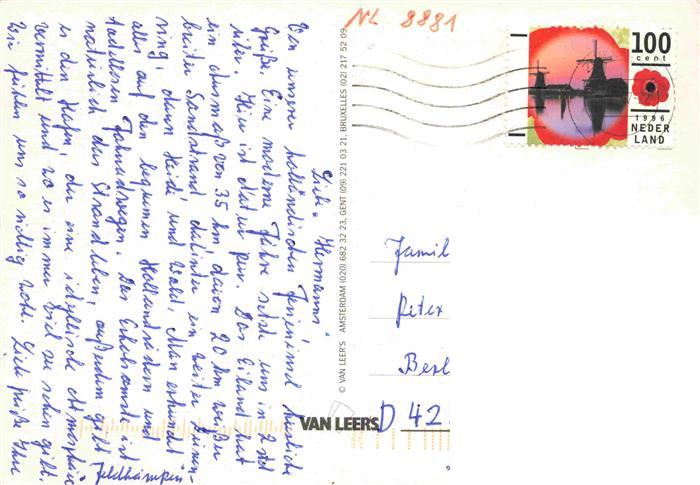 Liebe Hermanns!
Von unserer holländischen Ferieninsel herzliche
Grüße. Eine moderne Fähre setzte uns in 2 Std
über. Hier ist Natur pur. Das Eiland hat
ein Ausmaß von 35 km, davon 20 km weißer
breiter Sandstrand, dahinter ein weiter Dünen-
ring, dann Heide und Wald. Man erkundet
alles auf den bequemen Hollandrädern und
tadellosen Fahrradwegen. Das Erholsamste ist
natürlich das Strandleben, außerdem gibt
es den Hafen, der eine idyllische Atmosphäre
vermittelt und wo es immer viel zu sehen gibt.
Wir fühlen uns so richtig wohl. Liebe Grüße Ihre
Feldkämpen
NL 8881
100
cent
1996
NEDER
LAND
© VAN LEER'S AMSTERDAM (020) 682 32 23, GENT (09) 221 03 21, BRUXELLES (02) 217 52 09
VAN LEERS
Famil
Peter
Berl
D 42